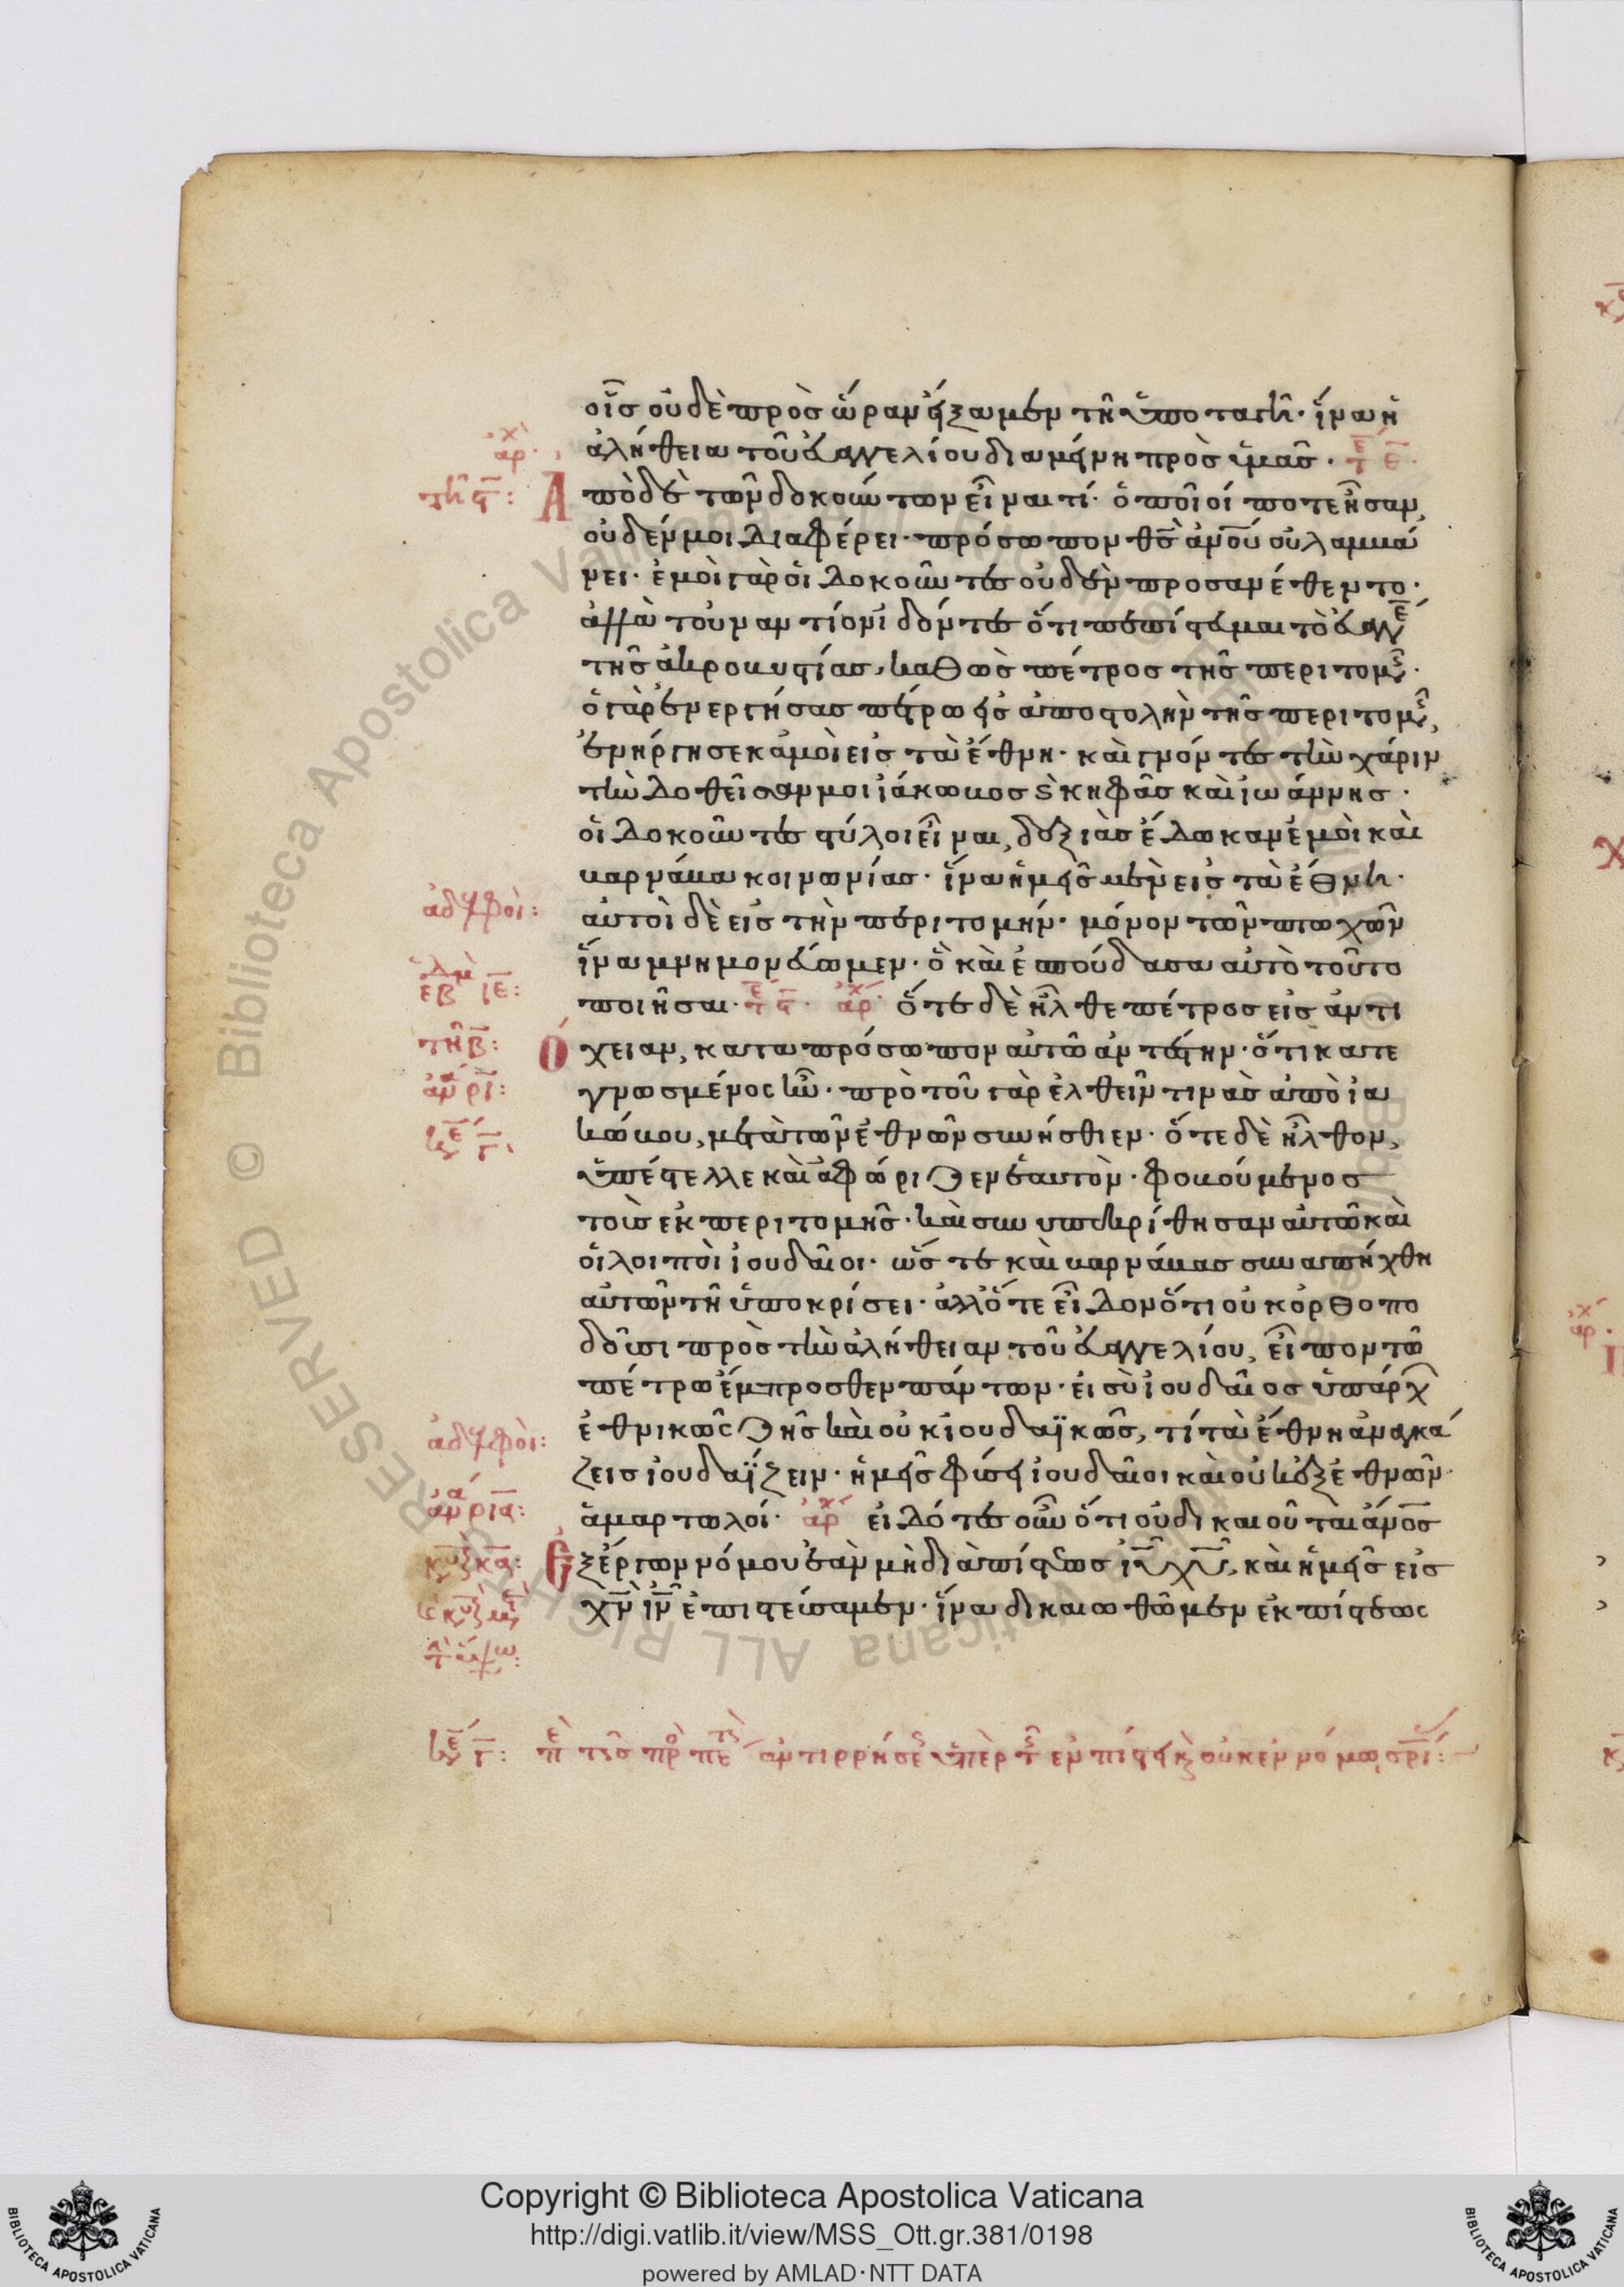 οἷς οὐδὲ πρὸς ὥραν εἴξαμεν τῆ ὑποταγῆ· ἵνα ἡ
ἀλήθεια τοῦ εὐαγγελίου διαμείνη πρὸς ὑμᾶς.
Ἀπὸ δὲ τῶν δοκούντων εἶναι τί· ὁποῖοί ποτε ἦσαν,
οὐδέν μοι διαφέρει· πρόσωπον θς ἀνου οὐ λαμβά
νει· ἐμοὶ γὰρ οἱ δοκοῦντες οὐδὲν προσανέθεντο·
ἀλλὰ τοὐναντίον ἰδόντες ὅτι πεπίστευμαι τὸ εὐαγγέ
τῆς ἀκροβυστίας, καθὼς πέτρος τῆς περιτομῆς·
ὁ γὰρ ἐνεργήσας πέτρω εἰς ἀποστολὴν τῆς περιτομῆς,
ἐνήργησε κἀμοὶ εἰς τὰ ἔθνη· καὶ γνόντες τὴν χάριν
τὴν δοθεῖσαν μοι ἰάκωβος ϗ κηφᾶς καὶ ἰωάννης·
οἱ δοκοῦντες στύλοι εἶναι, δεξιὰς ἔδωκαν ἐμοὶ καὶ
βαρνάβα κοινωνίας· ἵνα ἡμεῖς μὲν εἰς τὰ ἔθνη·
ἀδελφοὶ:
αὐτοὶ δὲ εἰς τὴν περιτομήν· μόνον τῶν πτωχῶν
ἵνα μνημονεύωμεν· ὃ καὶ ἐσπούδασα αὐτὸ τοῦτο
ποιῆσαι· ἀρχ ὅτε δὲ ἦλθε πέτρος εἰς ἀντι
Ὁ χειαν, κατα πρόσωπον αὐτῶ ἀντέστην· ὅτι κατε
γνωσμένος ἦν· πρὸ τοῦ γὰρ ἐλθεῖν τινὰς ἀπὸ ἰα
κώβου, μετὰ τῶν ἐθνῶν συνήσθιεν· ὅτε δὲ ἦλθον,
ὑπέστελλε καὶ ἀφώριζεν ἑαυτὸν· φοβούμενος
τοὺς ἐκ περιτομῆς· καὶ συνυπεκρίθησαν αὐτῶ καὶ
οἱ λοιποὶ ἰουδαῖοι· ὥστε καὶ βαρνάβας συναπήχθη
αὐτῶν τῆ ὑποκρίσει· ἀλλ' ὅτε εἶδον ὅτι οὐκ ὀρθοπο
δοῦσι πρὸς τὴν ἀλήθειαν τοῦ εὐαγγελίου, εἶπον τῶ
πέτρω ἔμπροσθεν πάντων· εἰ σὺ ἰουδαῖος ὑπάρχ
ἐθνικῶς ζῆς καὶ οὐκ ἰουδαϊκῶς, τί τὰ ἔθνη ἀναγκά
ἀδελφοὶ:
ζεις ἰουδαΐζειν· ἡμεῖς φύσει ἰουδαῖοι καὶ οὐκ ἐξ ἐθνῶν
ἁμαρτωλοί· ἀρχ εἰδότες οὖν ὅτι οὐ δικαιοῦται ἀνος
Ἐξ ἔργων νόμου ἐὰν μὴ διὰ πίστεως ἰυ χυ, καὶ ἡμεῖς εἰς
χν ιν ἐπιστεύσαμεν· ἵνα δικαιωθῶμεν ἐκ πίστεως
ἀντιρρήσε ὑπὲρ ἐν πίστει ϗ οὐκ ἐν νόμω
Copyright © Biblioteca Apostolica Vaticana
http://digi.vatlib.it/view/MSS_Ott.gr.381/0198
powered by AMLAD·NTT DATA
BIBLIOTECA APOSTOLICA VATICANA
BIBLIOTECA APOSTOLICA VATICANA